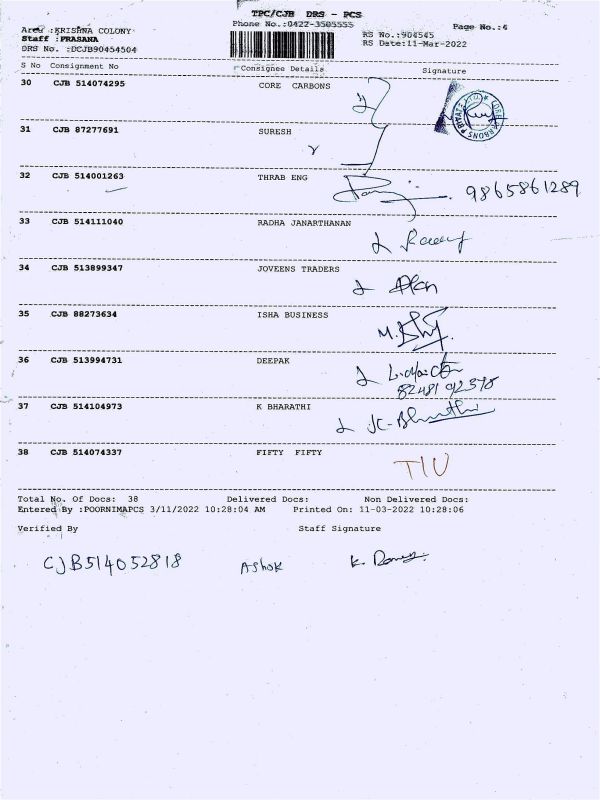 TPC/CJB DRS - PCS
Phone No.:0422-3505555
Page No.:4
Area :KRISHNA COLONY
Staff :PRASANA
RS No.:904545
DRS No. :DCJB90454504
RS Date:11-Mar-2022
S No Consignment No Consignee Details Signature
30 CJB 514074295 CORE CARBONS
31 CJB 87277691 SURESH
32 CJB 514001263 THRAB ENG 9865861289
33 CJB 514111040 RADHA JANARTHANAN
34 CJB 513899347 JOVEENS TRADERS
35 CJB 88273634 ISHA BUSINESS
36 CJB 513994731 DEEPAK
37 CJB 514104973 K BHARATHI K-Bharathi
38 CJB 514074337 FIFTY FIFTY TIU
Total No. Of Docs: 38 Delivered Docs: Non Delivered Docs:
Entered By :POORNIMAPCS 3/11/2022 10:28:04 AM Printed On: 11-03-2022 10:28:06
Verified By Staff Signature
CJB514052818 Ashok